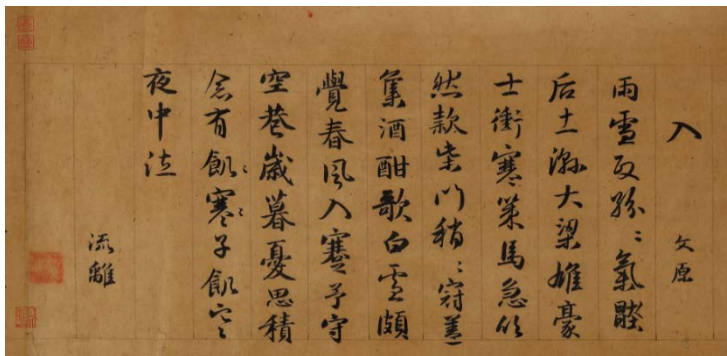 入 文原
雨雪紛〻氣
后土濕大梁雄豪
士衝寒策馬急欣
然款柴門稍〻冠蓋
集酒酣歌白雪頗
覺春風入蹇予守
空巷歲暮憂思積
念有飢〻寒〻子飢寒
夜中泣
流離